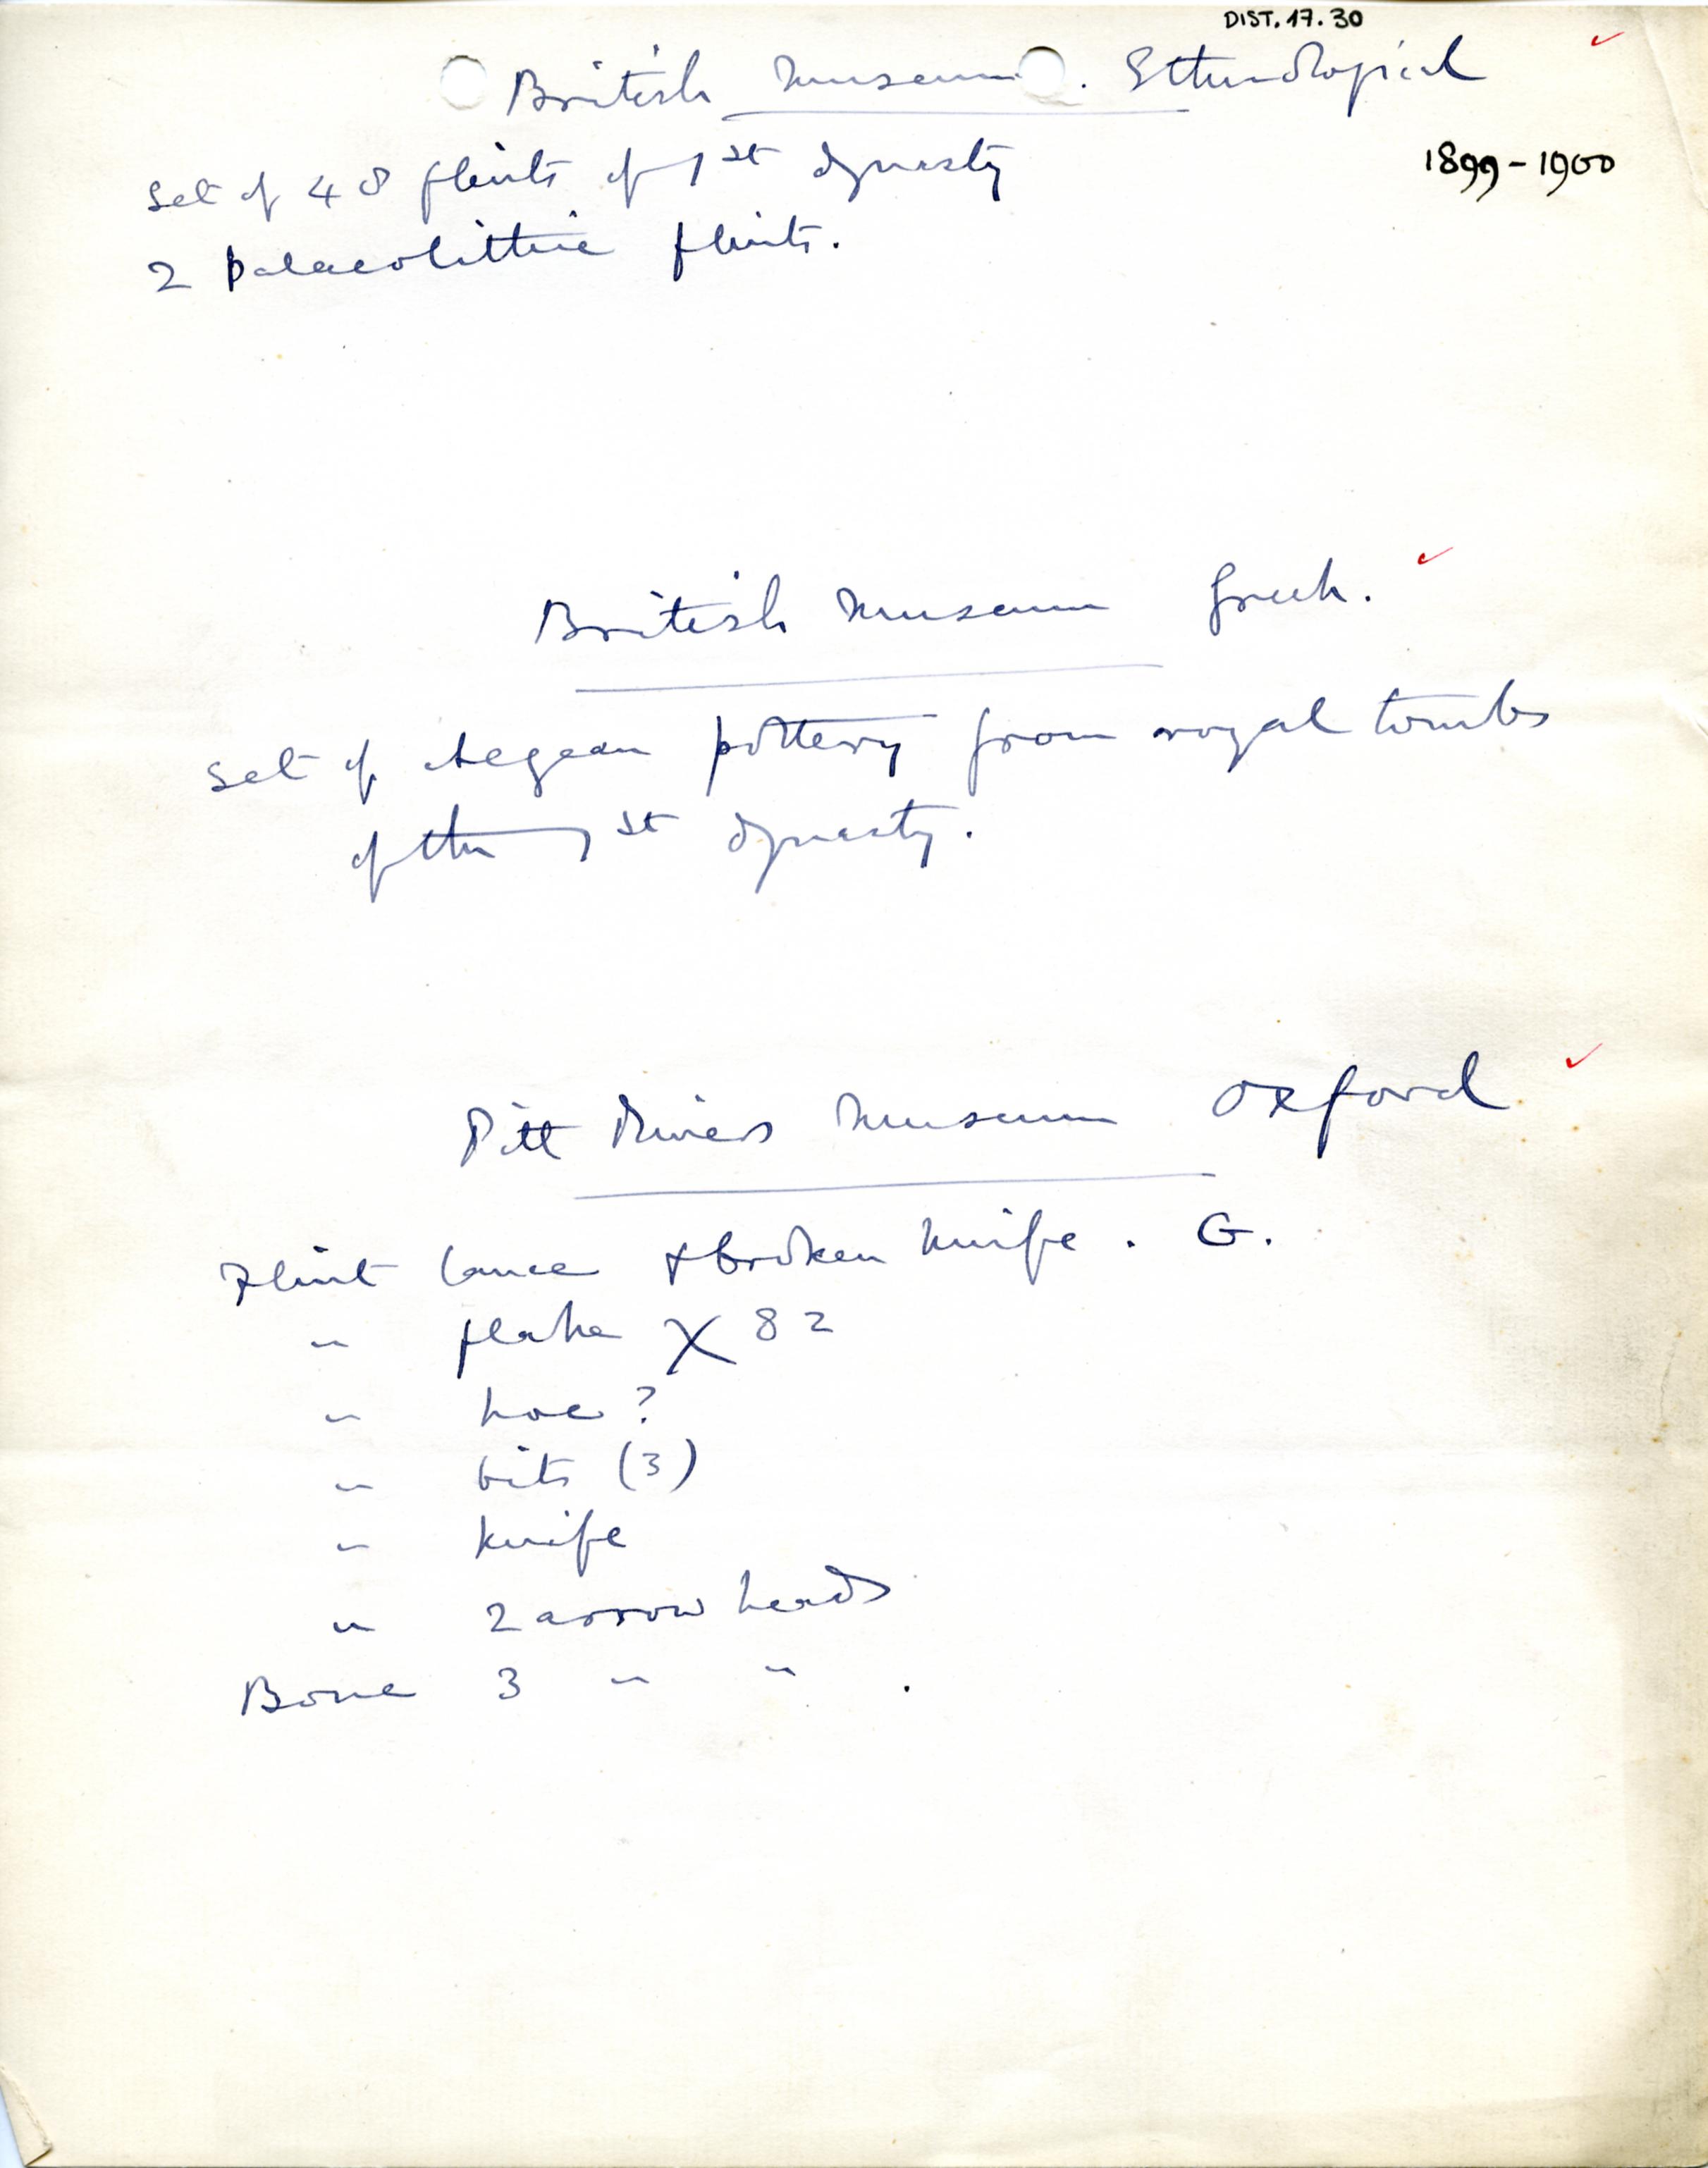 DIST. 17. 30
British Museum. Ethnological
1899-1900
Set of 48 flints of 1st dynasty
2 palaeolithic flints.
British Museum Greek.
Set of Aegean pottery from royal tombs
of the 1st dynasty.
Pitt Rivers Museum Oxford
Flint lance & broken knife. G.
" flake X 82
" hoe?
" bits (3)
" knife
" 2 arrow heads
Bone 3 " " .